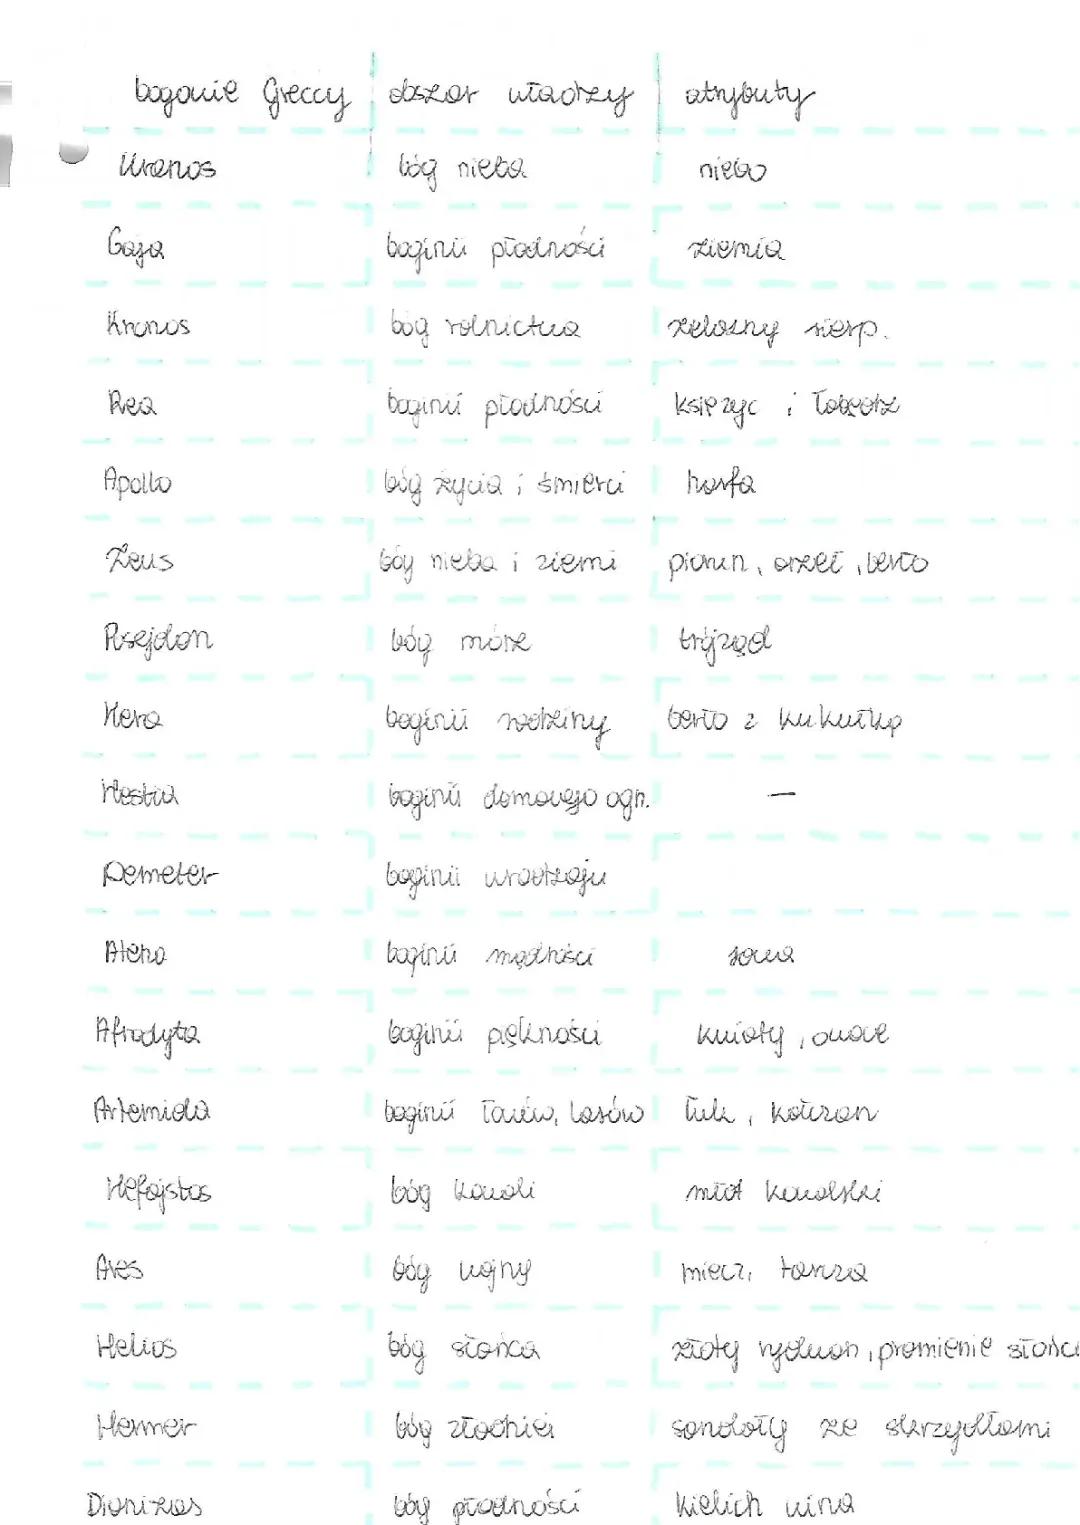 bogowie Greccy obszar władzy atrybuty
Uranos bóg nieba niebo
Gaja bogini płodności ziemia
Kronos bóg rolnictwa żelazny sierp.
Rea bogini płodności księżyc i łabędź
Apollo bóg życia i śmierci harfa
Zeus bóg nieba i ziemi piorun, orzeł, berło
Posejdon bóg mórz trójząd
Hera bogini rodziny berło z kukułką
Hestia bogini domowego ogn. —
Demeter bogini urodzaju
Atena bogini mądrości sowa
Afrodyta bogini piękności kwiaty, owoce
Artemida bogini łowów, lasów łuk, kołczan
Hefajstos bóg kowali młot kowalski
Ares bóg wojny miecz, tarcza
Helios bóg słońca złoty rydwan, promienie słońca
Hermer bóg złodziei sandały ze skrzydłami
Dionizos bóg płodności kielich wina